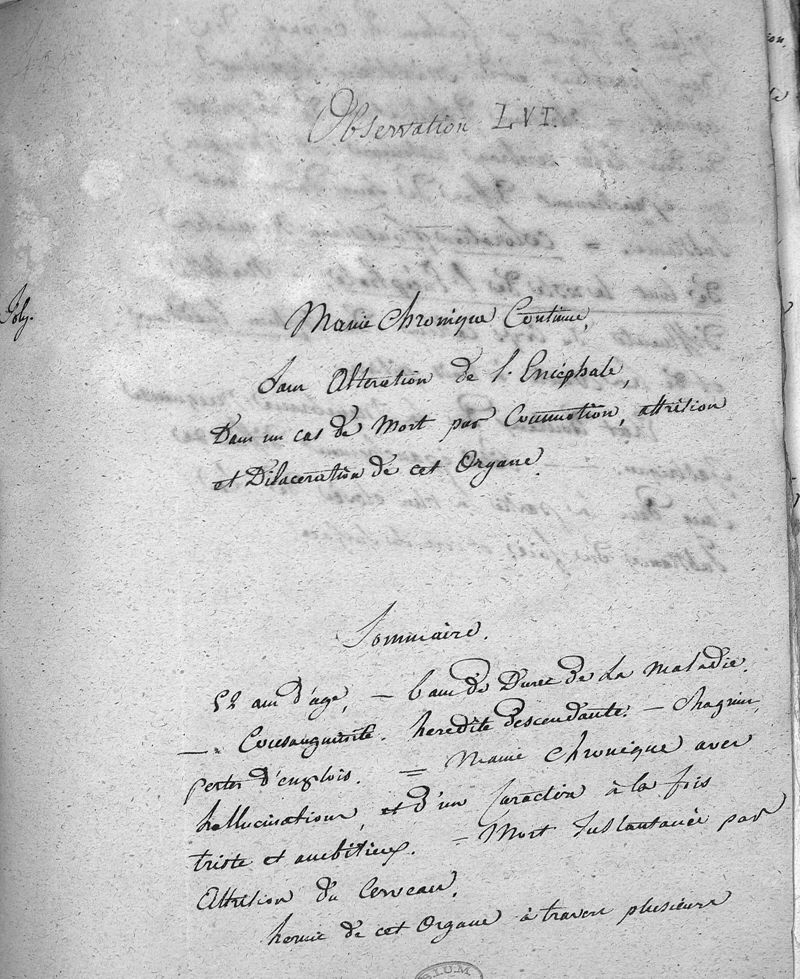 Observation LVI.
Foly.
Manie Chronique Continue,
Sans Altération de l'Encéphale,
Dans un cas de Mort par Commotion, attrition
et Dilaceration de cet Organe.
Sommaire.
52 ans d'age, — 6 ans de Durée de la Maladie.
— Consanguinité. hérédité descendante. — Chagrins,
pertes d'emplois. = Manie Chronique avec
hallucinations, et d'un Caractère à la fois
triste et ambitieux. = Mort Instantanée par
Attrition du Cerveau,
hernie de cet Organe à travers plusieurs
B.I.U.M.